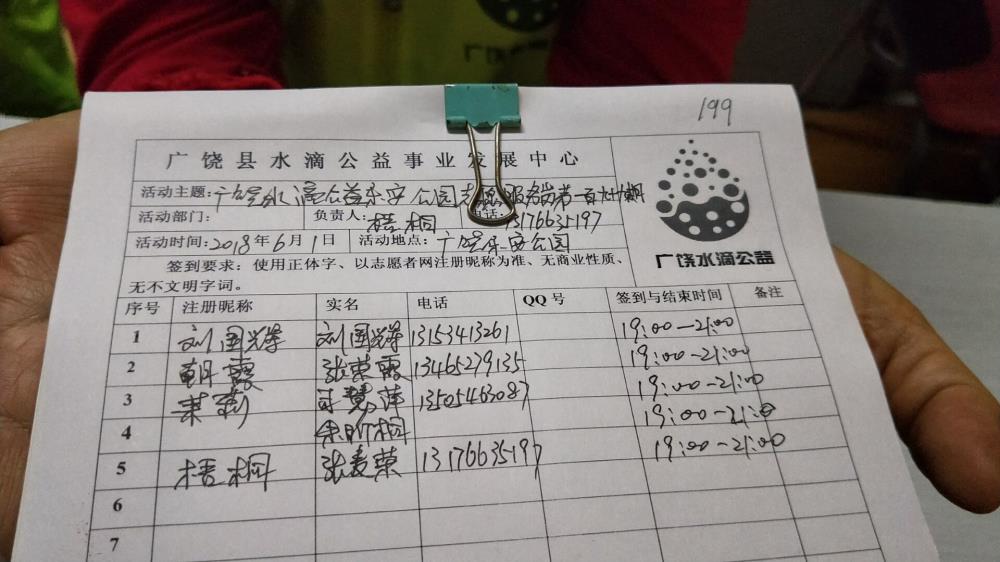 广饶
199
广饶县水滴公益事业发展中心
活动主题：广饶水滴公益乐安公园志愿服务岗第一百九十九期
活动部门： 负责人：梧桐 电话：13176635197
活动时间：2018年6月1日 活动地点：广饶乐安公园
广饶水滴公益
签到要求：使用正体字、以志愿者网注册昵称为准、无商业性质、
无不文明字词。
序号 注册昵称 实名 电话 QQ号 签到与结束时间 备注
1 刘国辉 刘国辉 13153413261 19:00-21:00
2 朝霞 张荣霞 13465279135 19:00-21:00
3 茉莉 慧萍 13505463087 19:00-21:00
4 桐 19:00-21:00
5 梧桐 张麦荣 13176635197 19:00-21:00
6
7